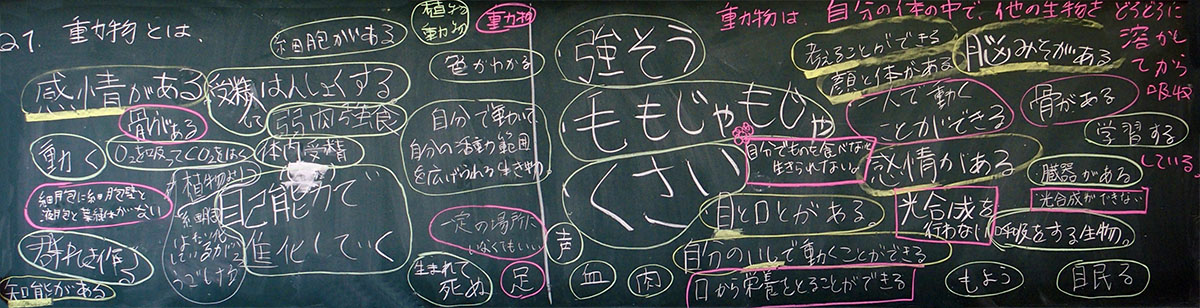 Q7. 動物とは、
細胞がある
植物
動物
動物
感情がある
受精して
はんしょくする
色がわかる
骨がある
弱肉強食
動く
O₂を吸ってCO₂をはく
体内受精
自分で動いて
自分の活動範囲
を広げられる生き物
細胞に細胞壁と
液胞と葉緑体がない
植物より
自己能力で
進化していく
一定の場所に
いなくてもいい
群れを作る
知能がある
生まれて
死ぬ
足
動物は、自分の体の中で、他の生物を どろどろに
溶かし
てから
吸収
している。
強そう
考えることができる
顔と体がある
脳みそがある
ももじゃもじゃ
一人で動く
ことができる
骨がある
学習する
自分でものを食べないと
生きられない。
くさい
感情がある
臓器がある
光合成ができない
目と口とがある
光合成を
行わない
呼吸をする生物。
声
自分のいしで動くことができる
血
肉
口から栄養をとることができる
もよう
自民る